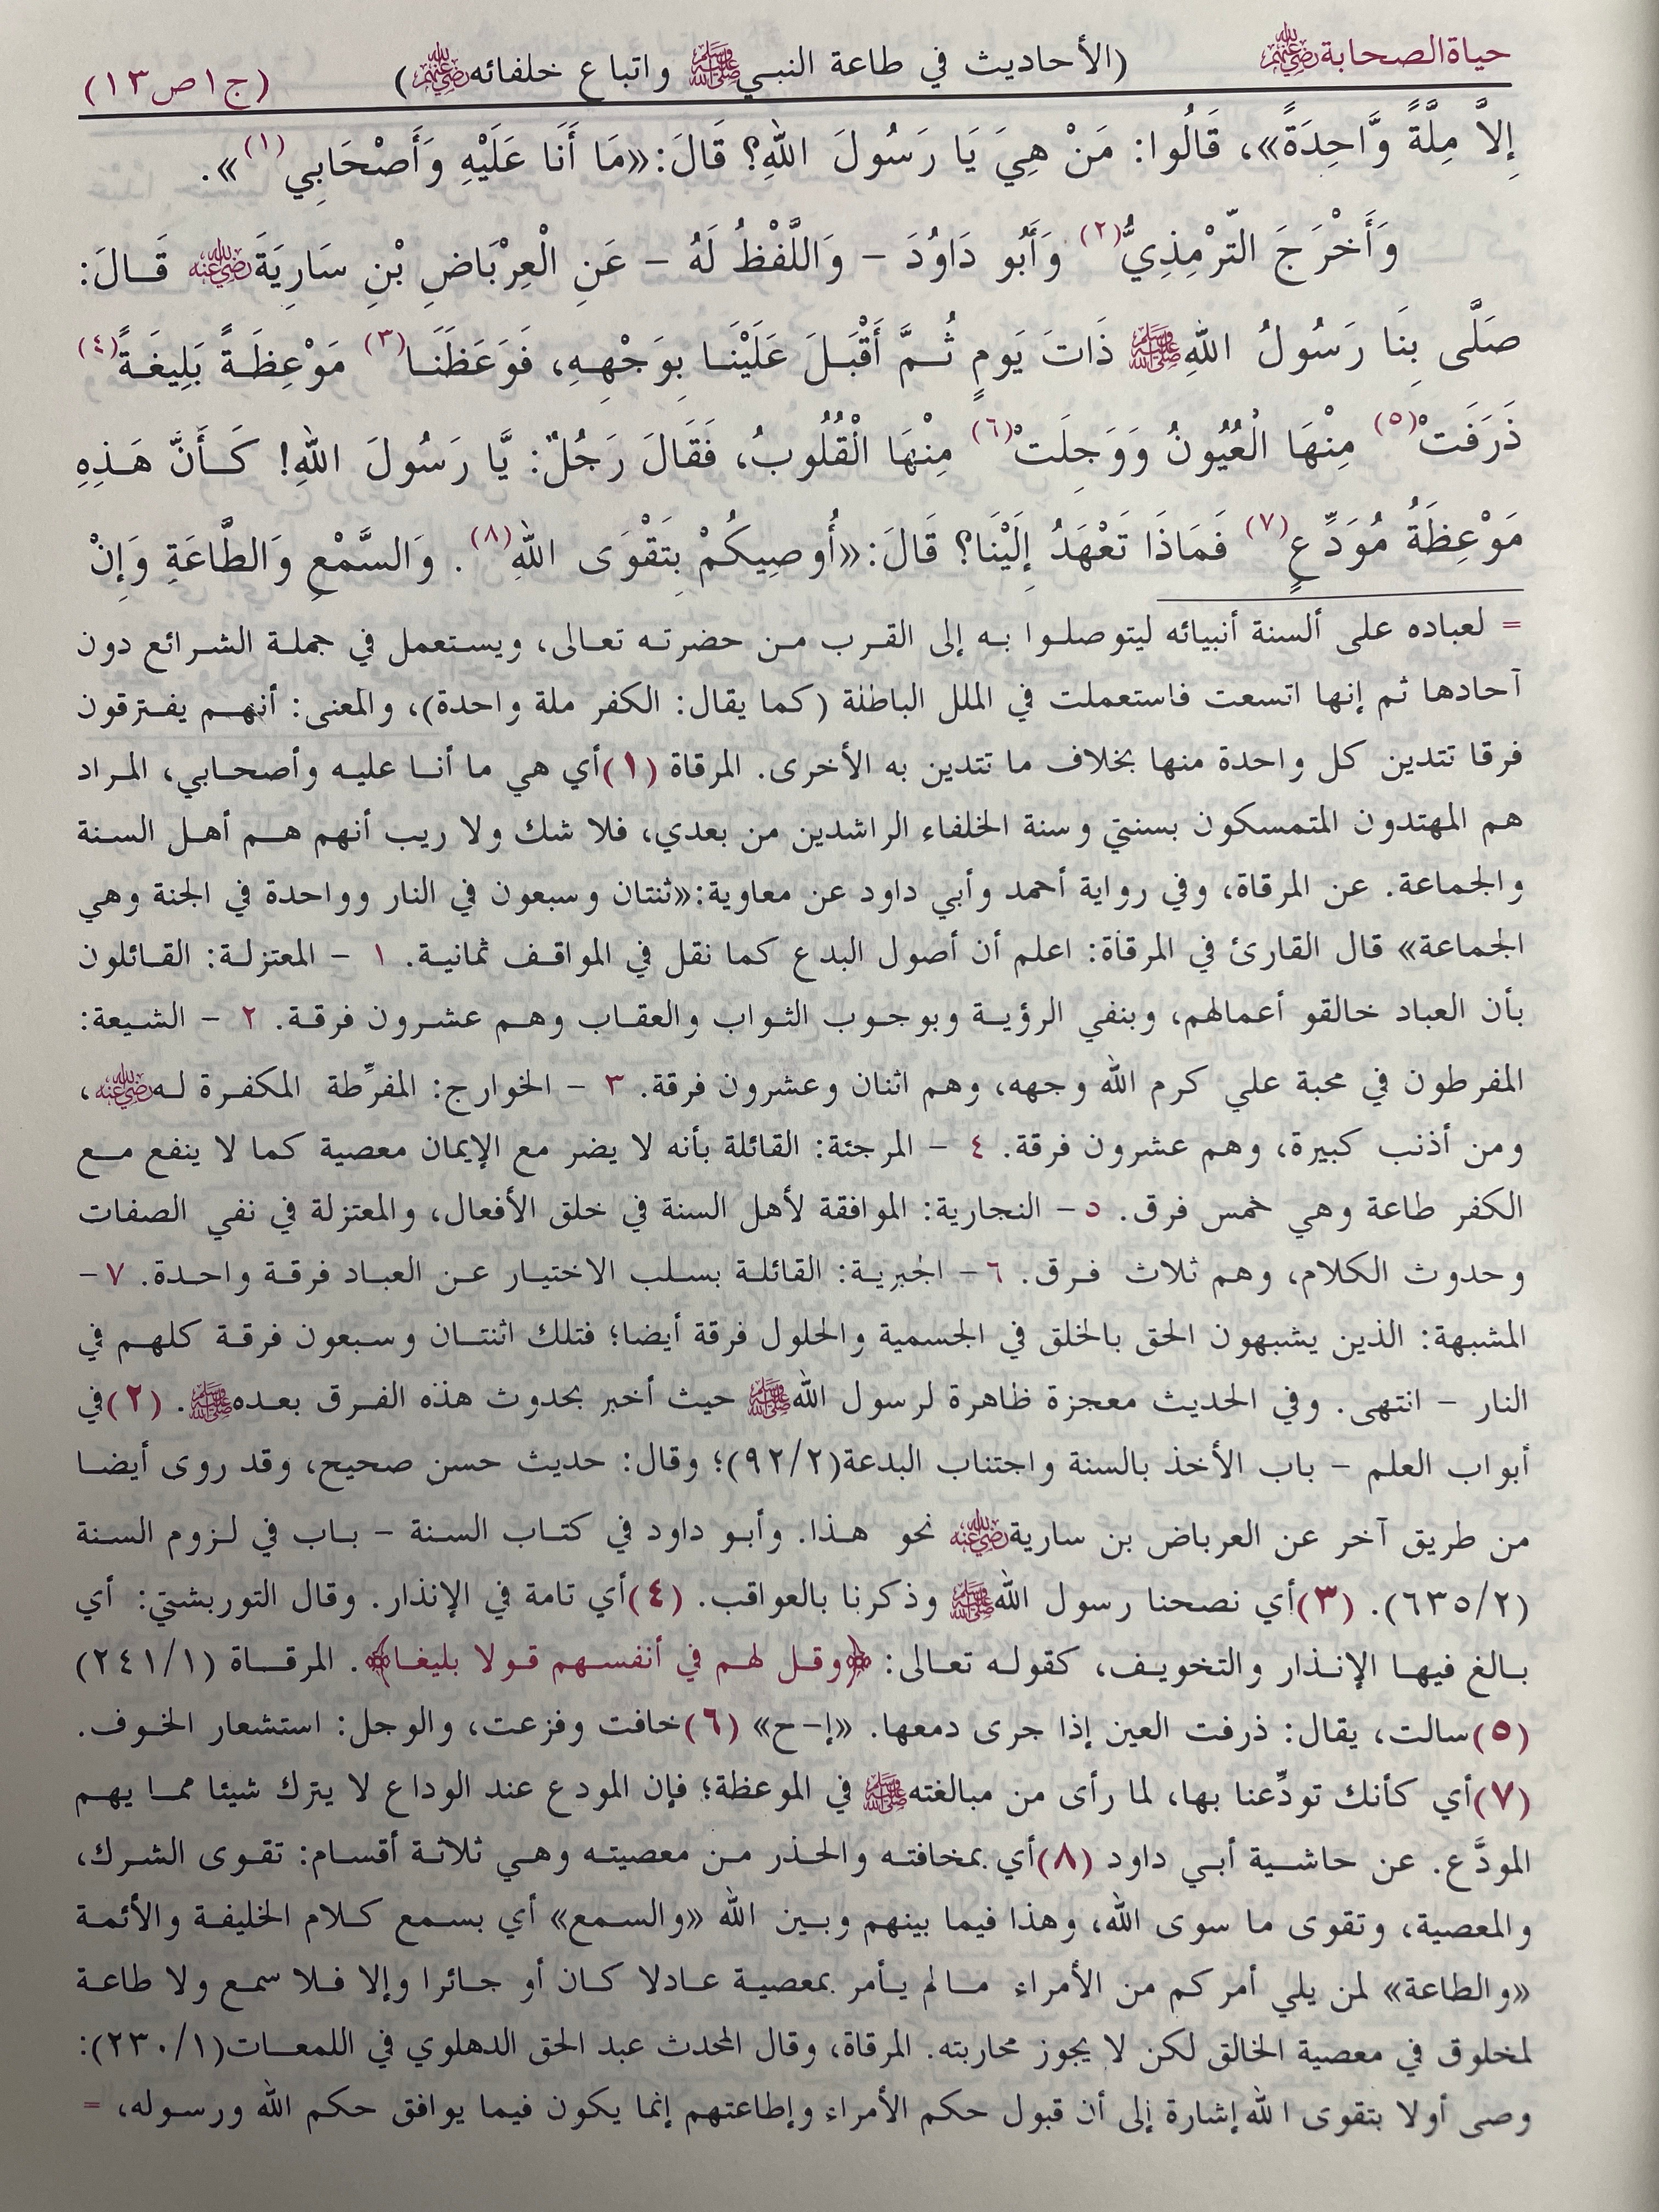 حياة الصحابة رضي الله عنهم (الأحاديث في طاعة النبي ﷺ واتباع خلفائه رضي الله عنهم) (ج١ ص١٣)
إِلاَّ مِلَّةً وَّاحِدَةً»، قَالُوا: مَنْ هِيَ يَا رَسُولَ اللهِ؟ قَالَ: «مَا أَنَا عَلَيْهِ وَأَصْحَابِي(١)».
وَأَخْرَجَ التِّرْمِذِيُّ(٢) وَأَبُو دَاوُدَ – وَاللَّفْظُ لَهُ – عَنِ الْعِرْبَاضِ بْنِ سَارِيَةَ رضي الله عنه قَـالَ:
صَلَّى بِنَا رَسُولُ اللهِ ﷺ ذَاتَ يَومٍ ثُـمَّ أَقْبَـلَ عَلَيْنَـا بِوَجْهِـهِ، فَوَعَظَنَـا(٣) مَوْعِظَـةً بَلِيغَـةً(٤)
ذَرَفَتْ(٥) مِنْهَا الْعُيُونُ وَوَجِلَتْ(٦) مِنْهَا الْقُلُوبُ، فَقَالَ رَجُلٌ: يَّا رَسُولَ اللهِ! كَـأَنَّ هَـذِهِ
مَوْعِظَةُ مُوَدِّعٍ(٧) فَمَاذَا تَعْهَدُ إِلَيْنَا؟ قَالَ: «أُوصِيكُمْ بِتَقْوَى اللهِ(٨). وَالسَّمْعِ وَالطَّاعَةِ وَإِنْ
= لعباده على ألسنة أنبيائه ليتوصلـوا بـه إلى القـرب مـن حضرتـه تعـالى، ويسـتعمل في جملـة الشـرائع دون
آحادها ثم إنها اتسعت فاستعملت في الملل الباطلة (كما يقال: الكفر ملة واحدة)، والمعنى: أنهـم يفـترقون
فرقا تتدين كل واحدة منها بخلاف ما تتدين به الأخرى. المرقاة (١)أي هي ما أنـا عليـه وأصحـابي، المـراد
هم المهتدون المتمسكون بسنتي وسنة الخلفاء الراشدين من بعدي، فلا شك ولا ريب أنهم هـم أهـل السـنة
والجماعة. عن المرقاة، وفي رواية أحمد وأبي داود عن معاوية: «ثنتان وسبعون في النار وواحدة في الجنة وهي
الجماعة» قال القارئ في المرقاة: اعلم أن أصول البدع كما نقل في المواقـف ثمانيـة. ١ – المعتزلـة: القـائلون
بأن العباد خالقو أعمالهم، وبنفي الرؤيـة وبوجـوب الثـواب والعقـاب وهـم عشـرون فرقـة. ٢ – الشـيعة:
المفرطون في محبة علي كرم الله وجهه، وهم اثنان وعشرون فرقة. ٣ – الخوارج: المفرِّطة المكفـرة لـه رضي الله عنه،
ومن أذنب كبيرة، وهم عشرون فرقة. ٤ – المرجئة: القائلة بأنه لا يضر مع الإيمان معصية كما لا ينفع مـع
الكفر طاعة وهي خمس فرق. ٥ – النجارية: الموافقة لأهل السنة في خلق الأفعال، والمعتزلة في نفي الصفات
وحدوث الكلام، وهم ثلاث فـرق. ٦ – الجبريـة: القائلـة بسـلب الاختيـار عـن العبـاد فرقـة واحـدة. ٧ –
المشبهة: الذين يشبهون الحق بالخلق في الجسمية والحلول فرقة أيضا؛ فتلك اثنتـان وسـبعون فرقـة كلهـم في
النار – انتهى. وفي الحديث معجزة ظاهرة لرسول الله ﷺ حيث أخبر بحدوث هذه الفـرق بعـده ﷺ. (٢)في
أبواب العلم – باب الأخذ بالسنة واجتناب البدعة(٩٢/٢)؛ وقال: حديث حسن صحيح، وقد روى أيضـا
من طريق آخر عن العرباض بن سارية رضي الله عنه نحو هـذا. وأبـو داود في كتـاب السـنة – بـاب في لـزوم السـنة
(٦٣٥/٢). (٣)أي نصحنا رسول الله ﷺ وذكرنا بالعواقب. (٤)أي تامة في الإنذار. وقال التوربشتي: أي
بـالغ فيهـا الإنـذار والتخويـف، كقولـه تعـالى: ﴿وقـل لهـم في أنفسـهم قـولا بليغـا﴾. المرقـاة (٢٤١/١)
(٥)سالت، يقال: ذرفت العين إذا جرى دمعها. «إ-ح» (٦)خافت وفزعت، والوجل: استشعار الخـوف.
(٧)أي كأنك تودِّعنا بها، لما رأى من مبالغته ﷺ في الموعظة؛ فإن المودع عند الوداع لا يترك شيئا ممـا يهـم
المودَّع. عن حاشـية أبـي داود (٨)أي بمخافتـه والحـذر مـن معصيتـه وهـي ثلاثـة أقسـام: تقـوى الشـرك،
والمعصية، وتقوى ما سوى الله، وهذا فيما بينهم وبـين الله «والسـمع» أي بسـمع كـلام الخليفـة والأئمـة
«والطاعة» لمن يلي أمركم من الأمراء مـالم يـأمر بمعصيـة عـادلا كـان أو جـائرا وإلا فـلا سمـع ولا طاعـة
لمخلوق في معصية الخالق لكن لا يجوز محاربته. المرقاة، وقال المحدث عبد الحق الدهلوي في اللمعـات(٢٣٠/١):
وصى أولا بتقوى الله إشارة إلى أن قبول حكم الأمراء وإطاعتهم إنما يكون فيما يوافق حكم الله ورسـوله، =